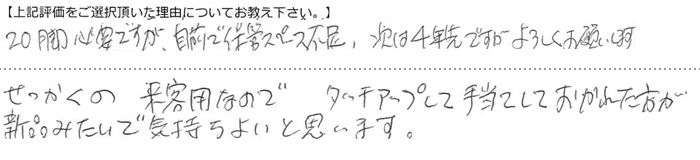 【上記評価をご選択頂いた理由についてお教え下さい。】
20脚必要ですが、自前で保管スペース不足、次は4年先ですがよろしくお願いします
せっかくの 来客用なので タッチアップして手当てしておかれた方が
新品みたいで気持ちよいと思います。